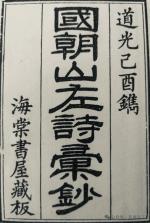 道光己酉鐫
國朝山左詩彙鈔
海棠書屋藏板